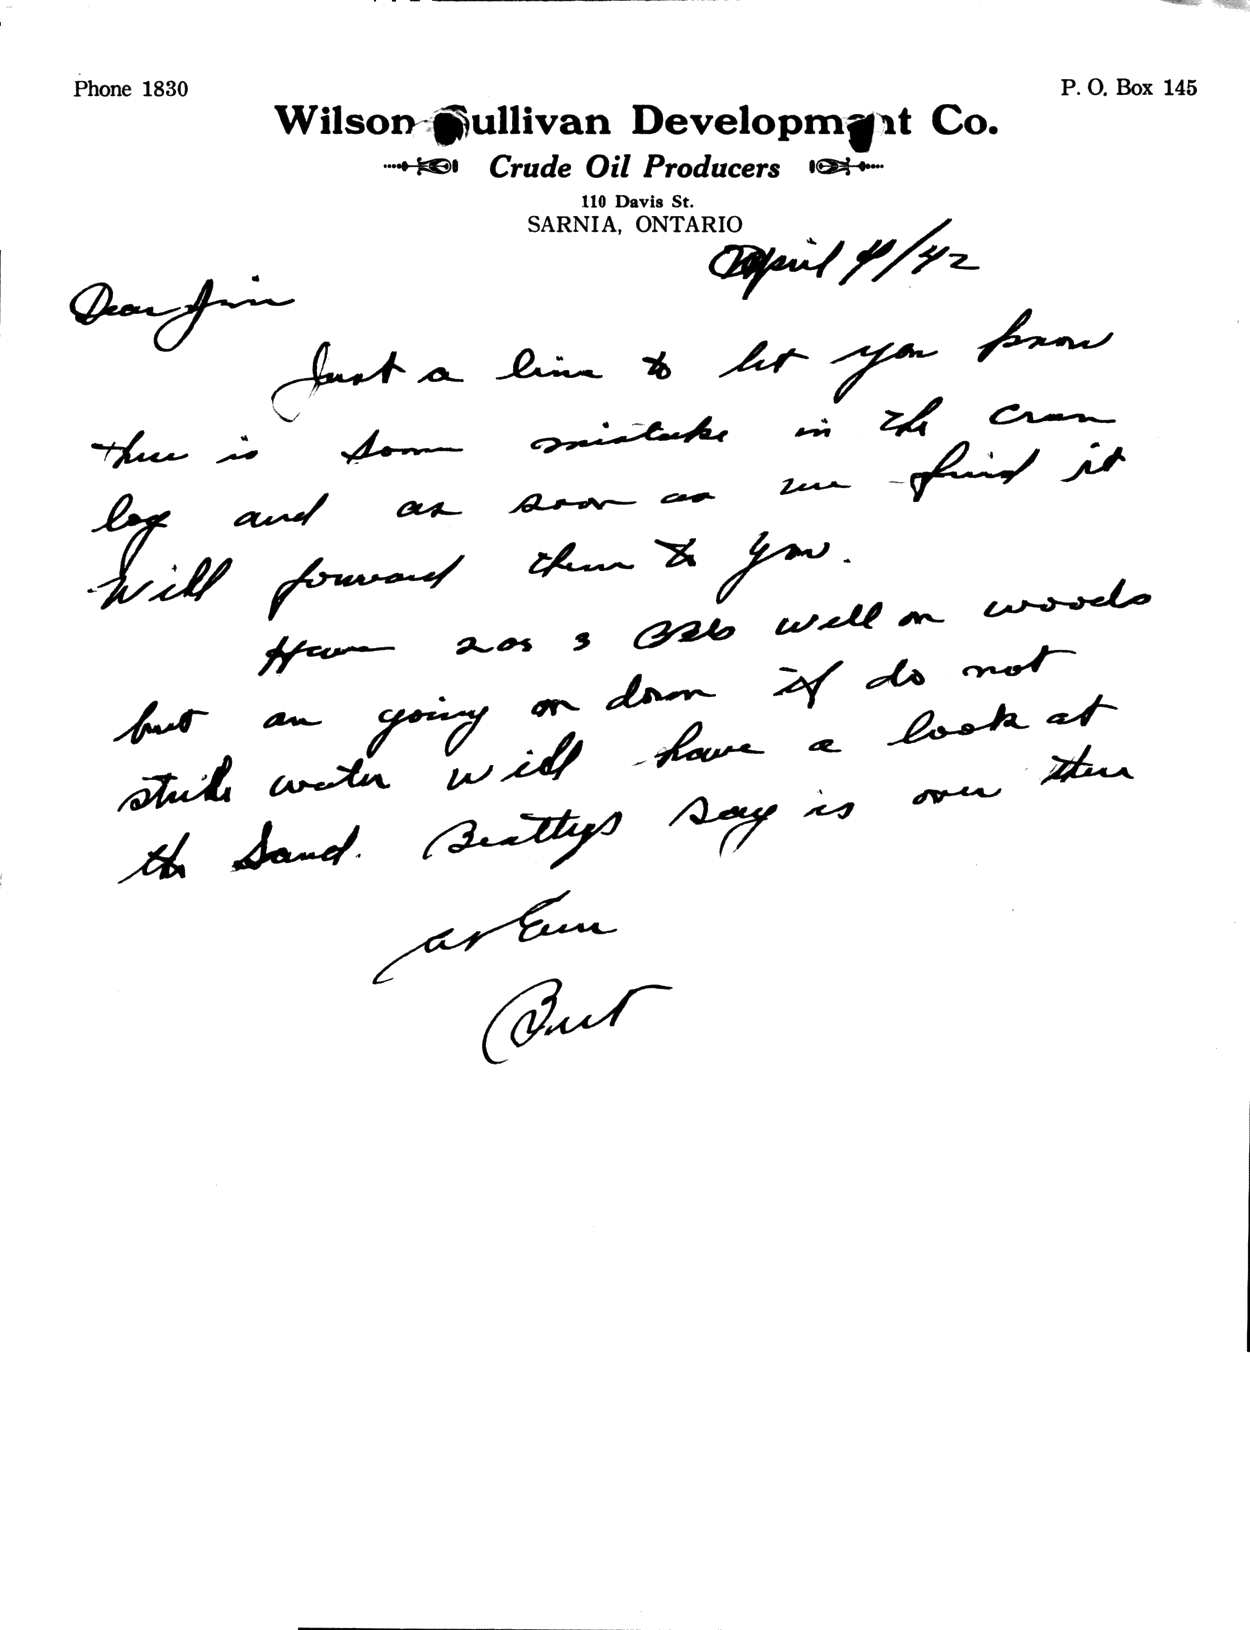 Phone 1830
P. O. Box 145
Wilson Sullivan Development Co.
Crude Oil Producers
110 Davis St.
SARNIA, ONTARIO
April 4/42
Dear Jim
Just a line to let you know
there is some mistake in the
log and as soon as we find it
will forward them to you.
Have 2 or 3 Bbls well on woods
but am going on down if do not
strike water will have a look at
the Sand. Beattys say is over there
as Ever
Burt